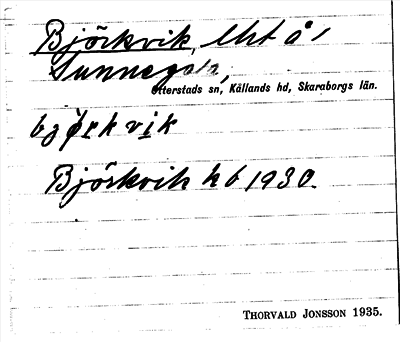 Björkvik, lht å
Sunnegår,
Otterstads sn, Kållands hd, Skaraborgs län.
bjørkvik
Björkvik hb 1930.
THORVALD JONSSON 1935.